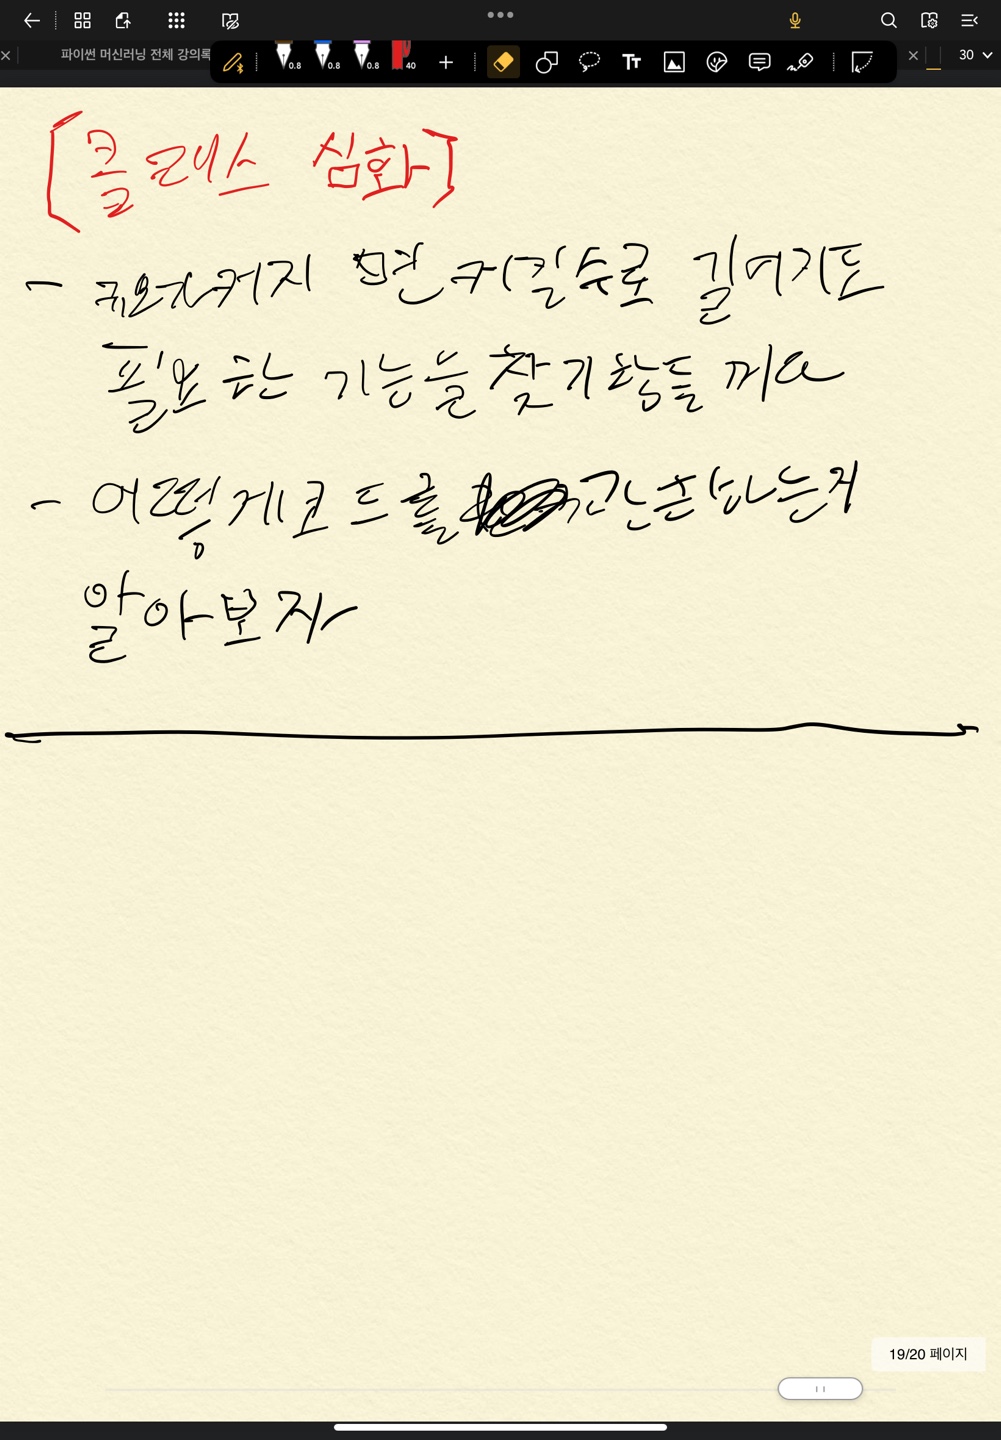 파이썬 머신러닝 전체 강의록
0.8 0.8 0.8 40 30
[클래스 심화]
- 커지면 커질수록 길어지고
필요한 기능을 찾기 힘들꺼요
- 어떻게 코드를 간소화하는지
알아보자
19/20 페이지